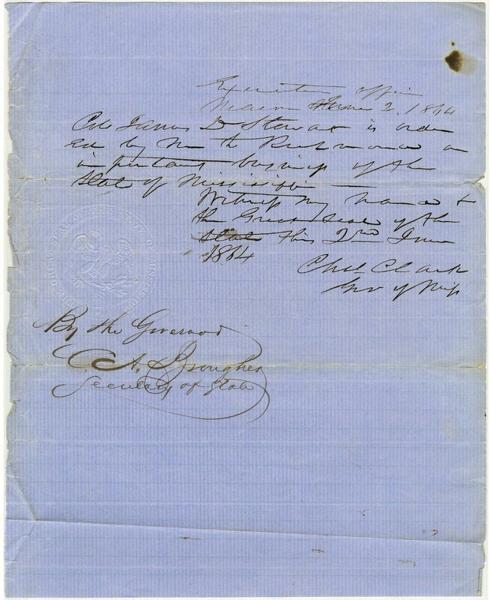 Executive Office
Macon June 2, 1864
Col James D Stewart is order
ed by me to Richmond on
important business of the
State of Mississippi —
Witness my hand &
the Great Seal of the
State this 2nd June
1864
Chas. Clark
Gov of Miss
By the Governor
C. A. Brougher
Secretary of State